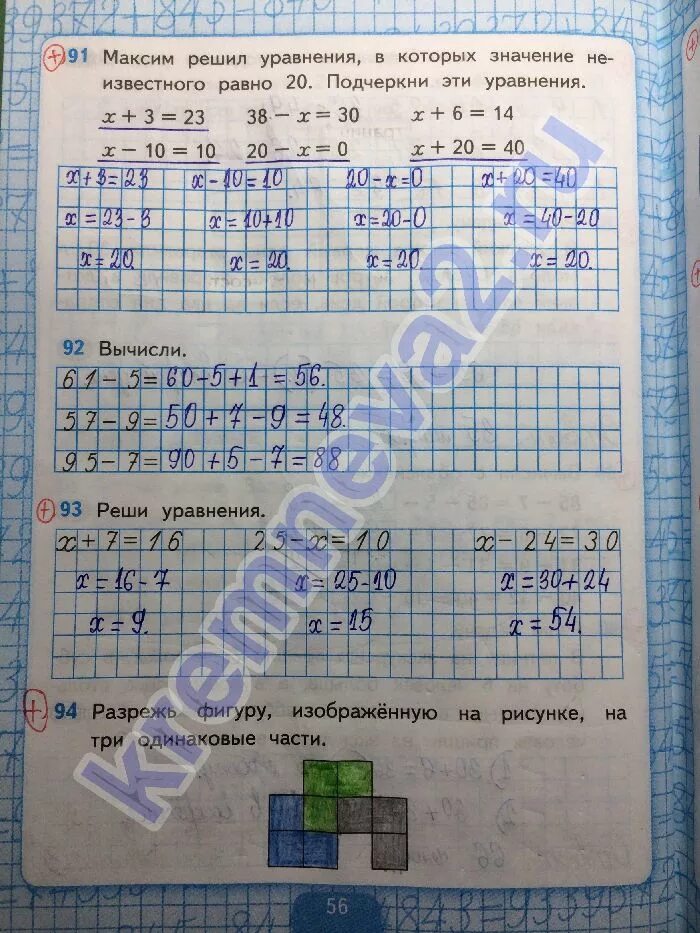 91 Максим решил уравнения, в которых значение не-
известного равно 20. Подчеркни эти уравнения.
x + 3 = 23 38 - x = 30 x + 6 = 14
x - 10 = 10 20 - x = 0 x + 20 = 40
x+3=23 x-10=10 20-x=0 x+20=40
x=23-3 x=10+10 x=20-0 x=40-20
x=20. x=20. x=20. x=20.
92 Вычисли.
61-5=60-5+1=56.
57-9=50+7-9=48.
95-7=90+5-7=88
93 Реши уравнения.
x+7=16 25-x=10 x-24=30
x=16-7 x=25-10 x=30+24
x=9. x=15 x=54.
94 Разрежь фигуру, изображённую на рисунке, на
три одинаковые части.
56
kremneva2.ru